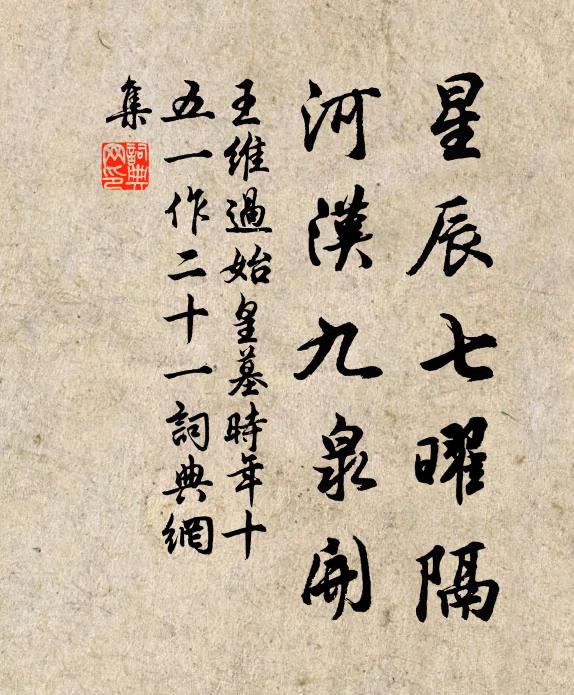 星辰七曜隔
河漢九泉開
王維過始皇墓時年十
五一作二十一詞典網
集
詞典
网印